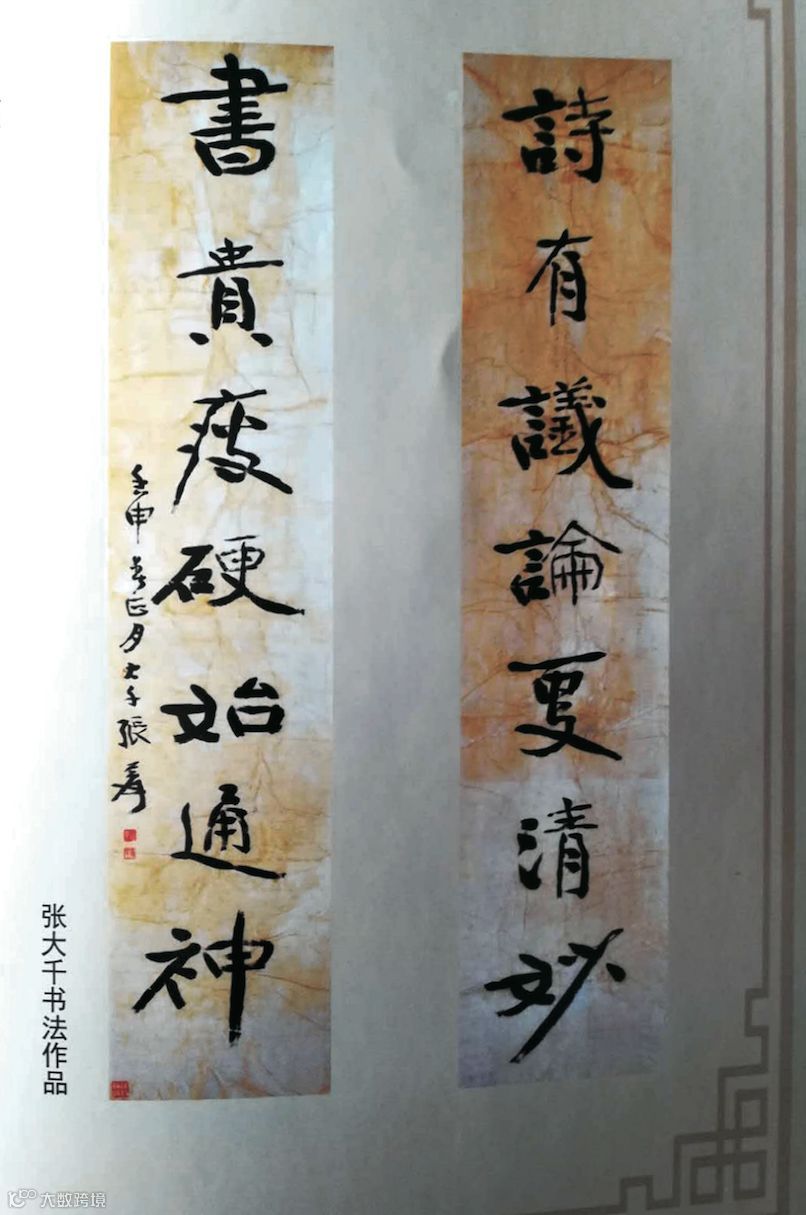 詩有議論更清妙
書貴瘦硬始通神
壬申春正月大千張爰
张大千书法作品
大数跨境